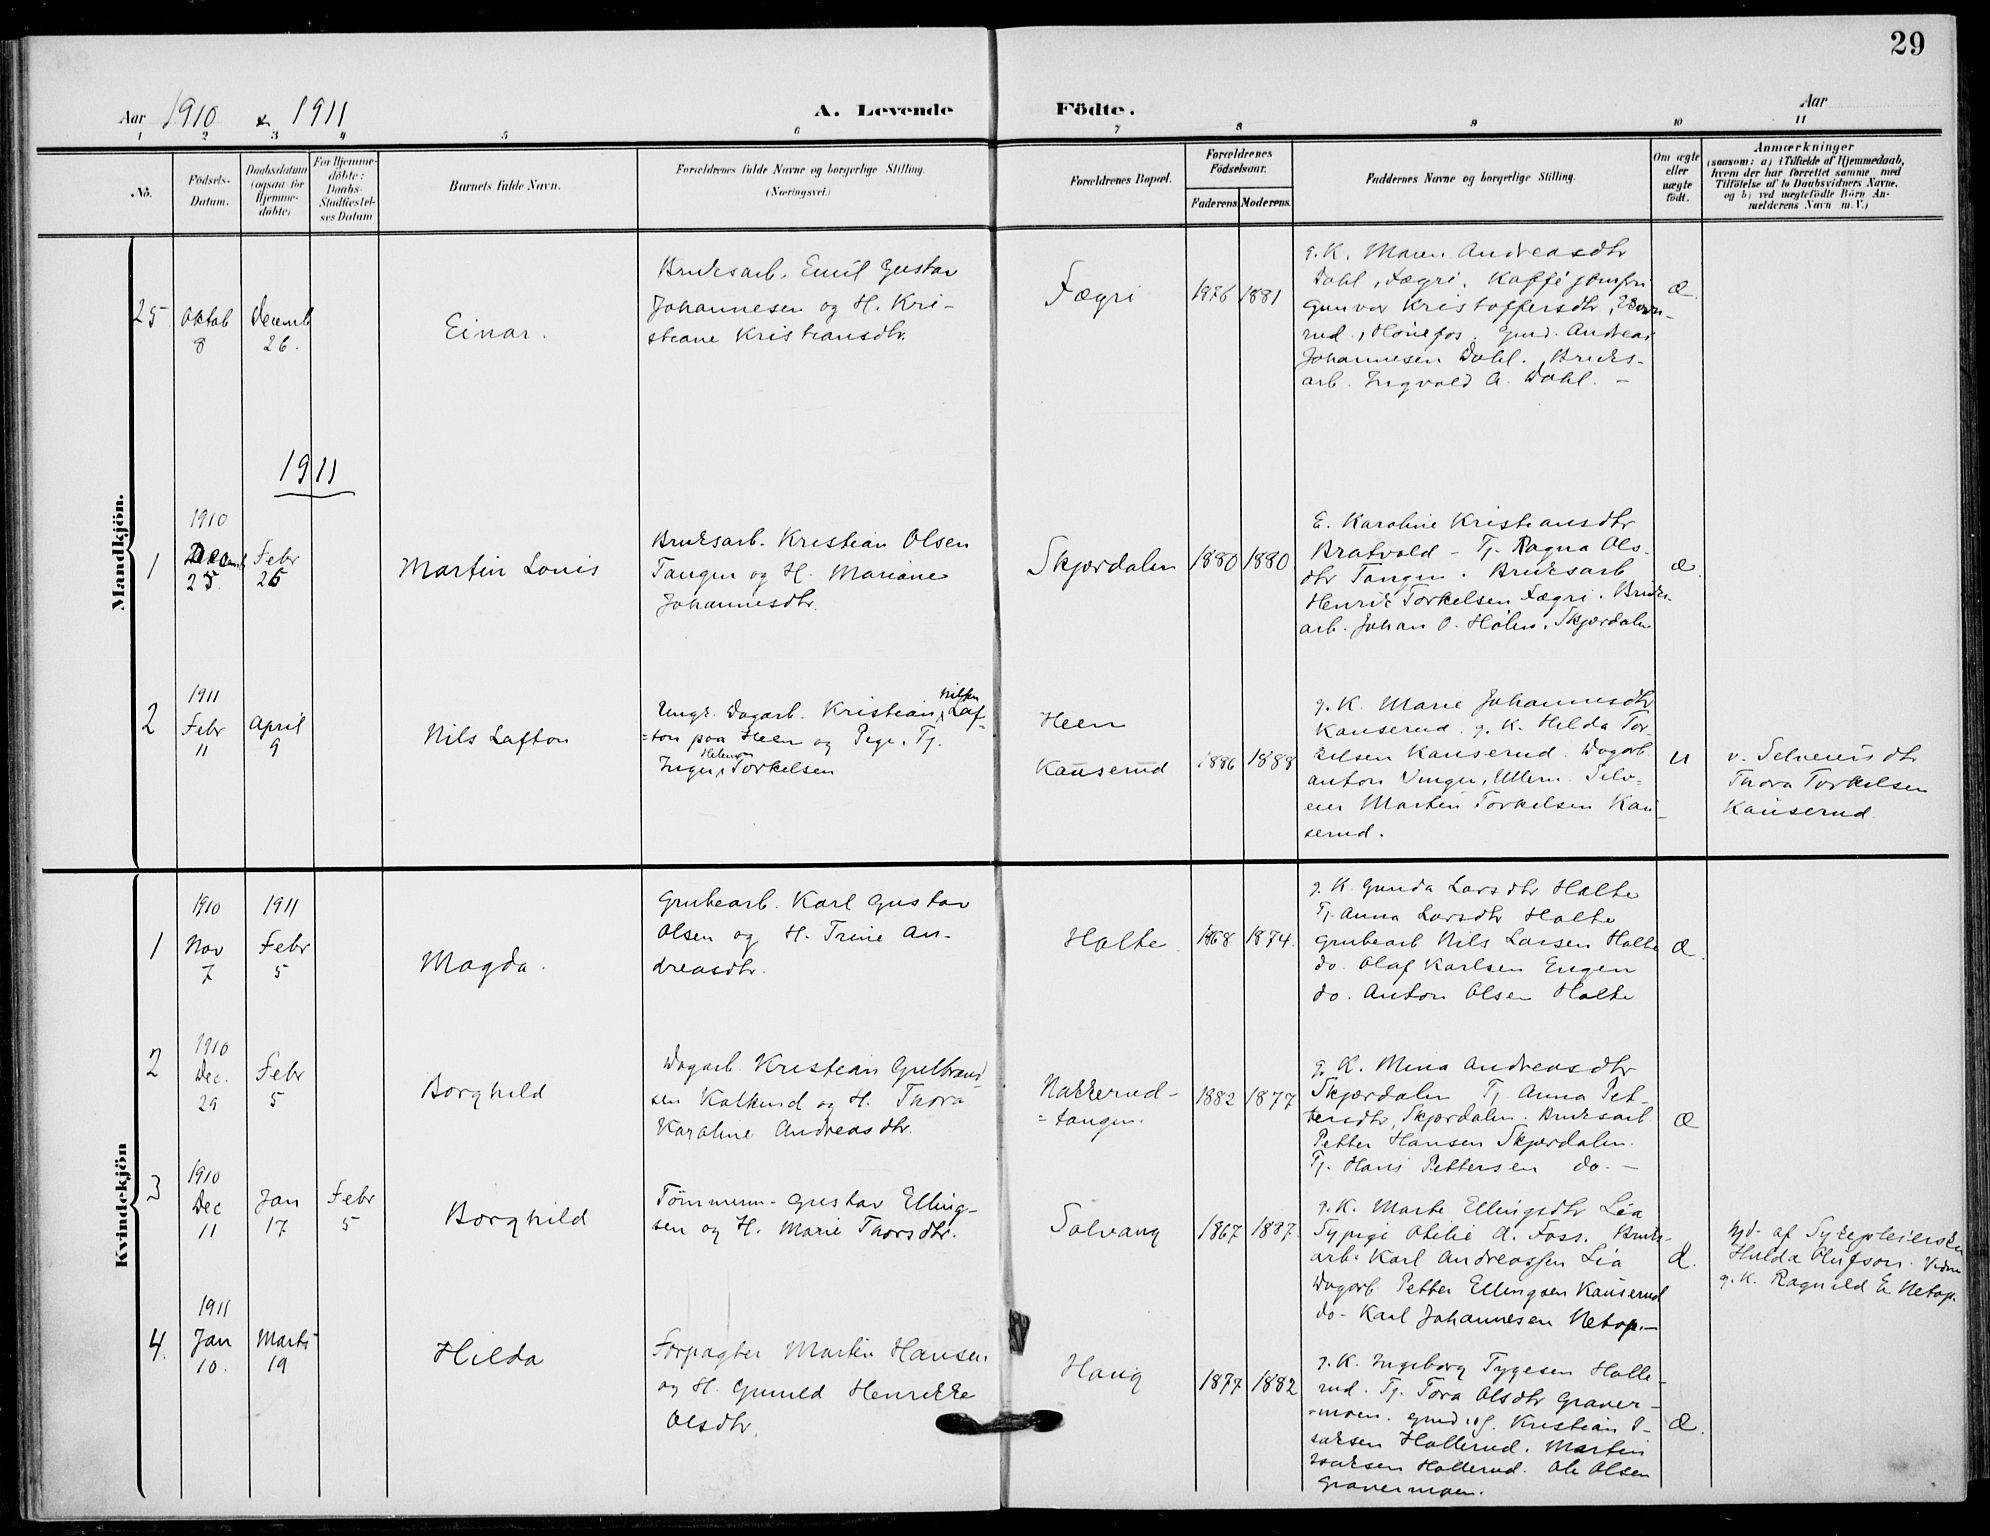 29
Aar 1910 & 1911
A. Levende Födte.
Aar
1 2 3 4 5 6 7 8 9 10 11
No.
Födsels-
Datum.
Daabsdatum
(ogsaa for
Hjemme-
döbte)
For Hjemme-
döbte:
Daabs-
Stadfæstel-
ses Datum
Barnets fulde Navn.
Forældrenes fulde Navne og borgerlige Stilling.
(Næringsvei.)
Forældrenes Bopæl.
Forældrenes
Födselsaar.
Faderens. Moderens.
Faddernes Navne og borgerlige Stilling.
Om ægte
eller
uægte
födt.
Anmærkninger
(saasom: a) i Tilfælde af Hjemmedaab,
hvem der har forrettet samme med
Tilföielse af to Daabsvidners Navne,
og b) ved uægtefödte Börn An-
melderens Navn m. V.)
Mandkjön.
25
Oktob
8
Decemb
26.
Einar.
Bruksarb. Emil Gustav
Johannesen og H. Kri-
stiane Kristiansdtr.
Fægri
1976 1881
g. K. Maren Andreasdtr
Dahl, Fægri. Kaffejomfru
Gunvor Kristoffersdtr,
rud, Hönefos. Gmd. Andreas
Johannesen Dahl. Bruks-
arb. Ingvald A. Dahl. -
Æ
1911
1
1910
Decemb
25.
Febr
26
Martin Louis
Bruksarb. Kristian Olsen
Tangen og H. Mariane
Johannesdtr.
Skjærdalen
1880 1880
E. Karoline Kristiansdtr
Bratvold - Tj. Ragna Ols-
dtr Tangen. Bruksarb
Henrik Torkelsen Fægri. Bruks-
arb. Johan O. Holm, Skjærdalen
Æ
2
1911
Febr
11
April
9
Nils Lafton
Ungk. Dagarb. Kristian Nilsen Laf-
=ton paa Heen og Pige. Tj.
Inger Helene Torkelsen
Heen
Kauserud
1886 1888
g. K. Marie Johannesdtr
Kauserud. g. K. Hilda Tor-
kelsen Kauserud. Dagarb
Anton Unger, Ullern. Selv-
eier Martin Torkelsen Kau-
serud.
U
v. Selveiersdtr
Thora Torkelsen
Kauserud
Kvindekjön
1
1910
Nov
7
1911
Febr
5
Magda.
Grubearb. Karl Gustav
Olsen og H. Trine An-
dreasdtr.
Holte
1868 1874.
g. K. Gunda Larsdtr Holte
Tj. Anna Larsdtr Holte
Grubearb Nils Larsen Holte
do. Olaf Karlsen Engen
do. Anton Olsen Holte
Æ.
2
1910
Dec.
29
Febr
5
Borghild
Dagarb. Kristian Gulbrand-
sen Kolkind og H. Thora
Karoline Andreasdtr.
Nakkerud-
=tangen.
1882 1877
g. K. Mina Andreasdtr
Skjærdalen Tj Anna Pet-
tersdtr, Skjærdalen. Bruksarb.
Petter Hansen Skjærdalen.
Tj. Hans Pettersen do. -
Æ
3
1910
Dec
11
Jan
17
Febr
5
Borghild
Tömmerm- Gustav Elling-
sen og H. Marie Thorsdtr.
Solvang
1867 1887
g. K. Marte Ellingsdtr Lia
Sypige Otilie A. Foss. Bruks-
arb. Karl Andreassen Lia
Dagarb Petter Ellingsen Kauserud
do- Karl Johannesen Netop.-
Æ.
hjd. af Sykepleiersken
Hulda Olufson. Vidne
g. K. Ragnild E Netop.
4.
1911
Jan
10.
Marts
19
Hilda
Forpagter Martin Hansen
og H. Gunild Henrikke
Olsdtr.
Haug
1877 1882
g. K. Ingeborg Tygesen Holle-
rud. Tj. Tora Olsdtr Graver-
=moen. Gmd. Kristian I-
saksen Hollerud. Martin
Isaksen Hollerud. Ole Olsen
Gravermoen.
Æ.